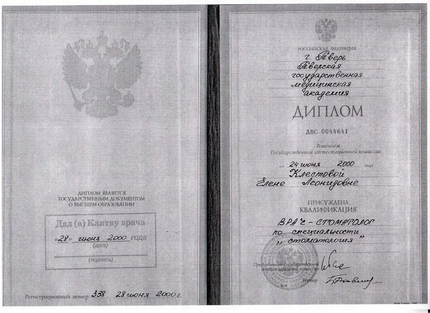 ДИПЛОМ ЯВЛЯЕТСЯ
ГОСУДАРСТВЕННЫМ ДОКУМЕНТОМ
О ВЫСШЕМ ОБРАЗОВАНИИ
Дал(а) Клятву врача
"28" июня 2000 года
(дата)
(подпись)
Регистрационный номер 338 28 июня 2000 г.
РОССИЙСКАЯ ФЕДЕРАЦИЯ
г. Тверь
Тверская
государственная
медицинская
академия
ДИПЛОМ
ДВС 0044641
Решением
Государственной аттестационной комиссии
от 24 июня 2000 года
Клестовой
Елене Леонидовне
ПРИСУЖДЕНА
КВАЛИФИКАЦИЯ
ВРАЧ-СТОМАТОЛОГ
по специальности
"стоматология"